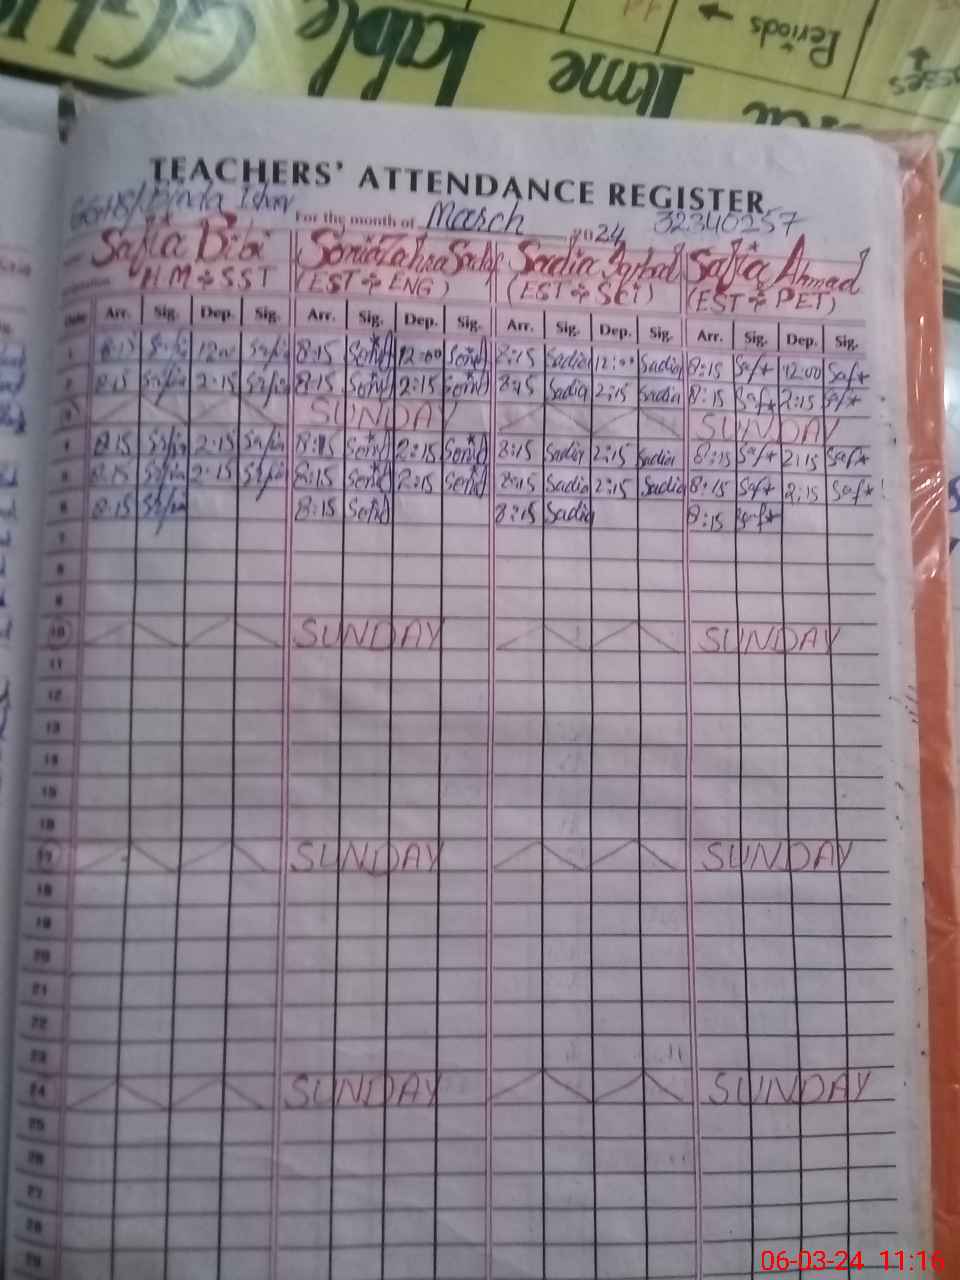 Periods
Time Table
TEACHERS' ATTENDANCE REGISTER
For the month of March 2024 32340257
Safia Bibi Sadia Iqbal Safia Ahmad
HM & SST (EST & ENG) (EST & SCI) (EST & PET)
Date Arr. Sig. Dep. Sig. Arr. Sig. Dep. Sig. Arr. Sig. Dep. Sig. Arr. Sig. Dep. Sig.
1 8:15 Safia 12:00 Safia 8:15 12:00 8:15 Sadia 12:00 Sadia 8:15 Saf 12:00 Saf
2 8:15 Safia 2:15 Safia 8:15 2:15 8:15 Sadia 2:15 Sadia 8:15 Saf 2:15 Saf
3 SUNDAY SUNDAY
4 8:15 Safia 2:15 Safia 8:15 2:15 8:15 Sadia 2:15 Sadia 8:15 Saf 2:15 Saf
5 8:15 Safia 2:15 Safia 8:15 2:15 8:15 Sadia 2:15 Sadia 8:15 Saf 2:15 Saf
6 8:15 Safia 8:15 8:15 Sadia 8:15 Saf
7
8
9
10 SUNDAY SUNDAY
11
12
13
14
15
16
17 SUNDAY SUNDAY
18
19
20
21
22
23
24 SUNDAY SUNDAY
25
26
27
28
29
06-03-24 11:16